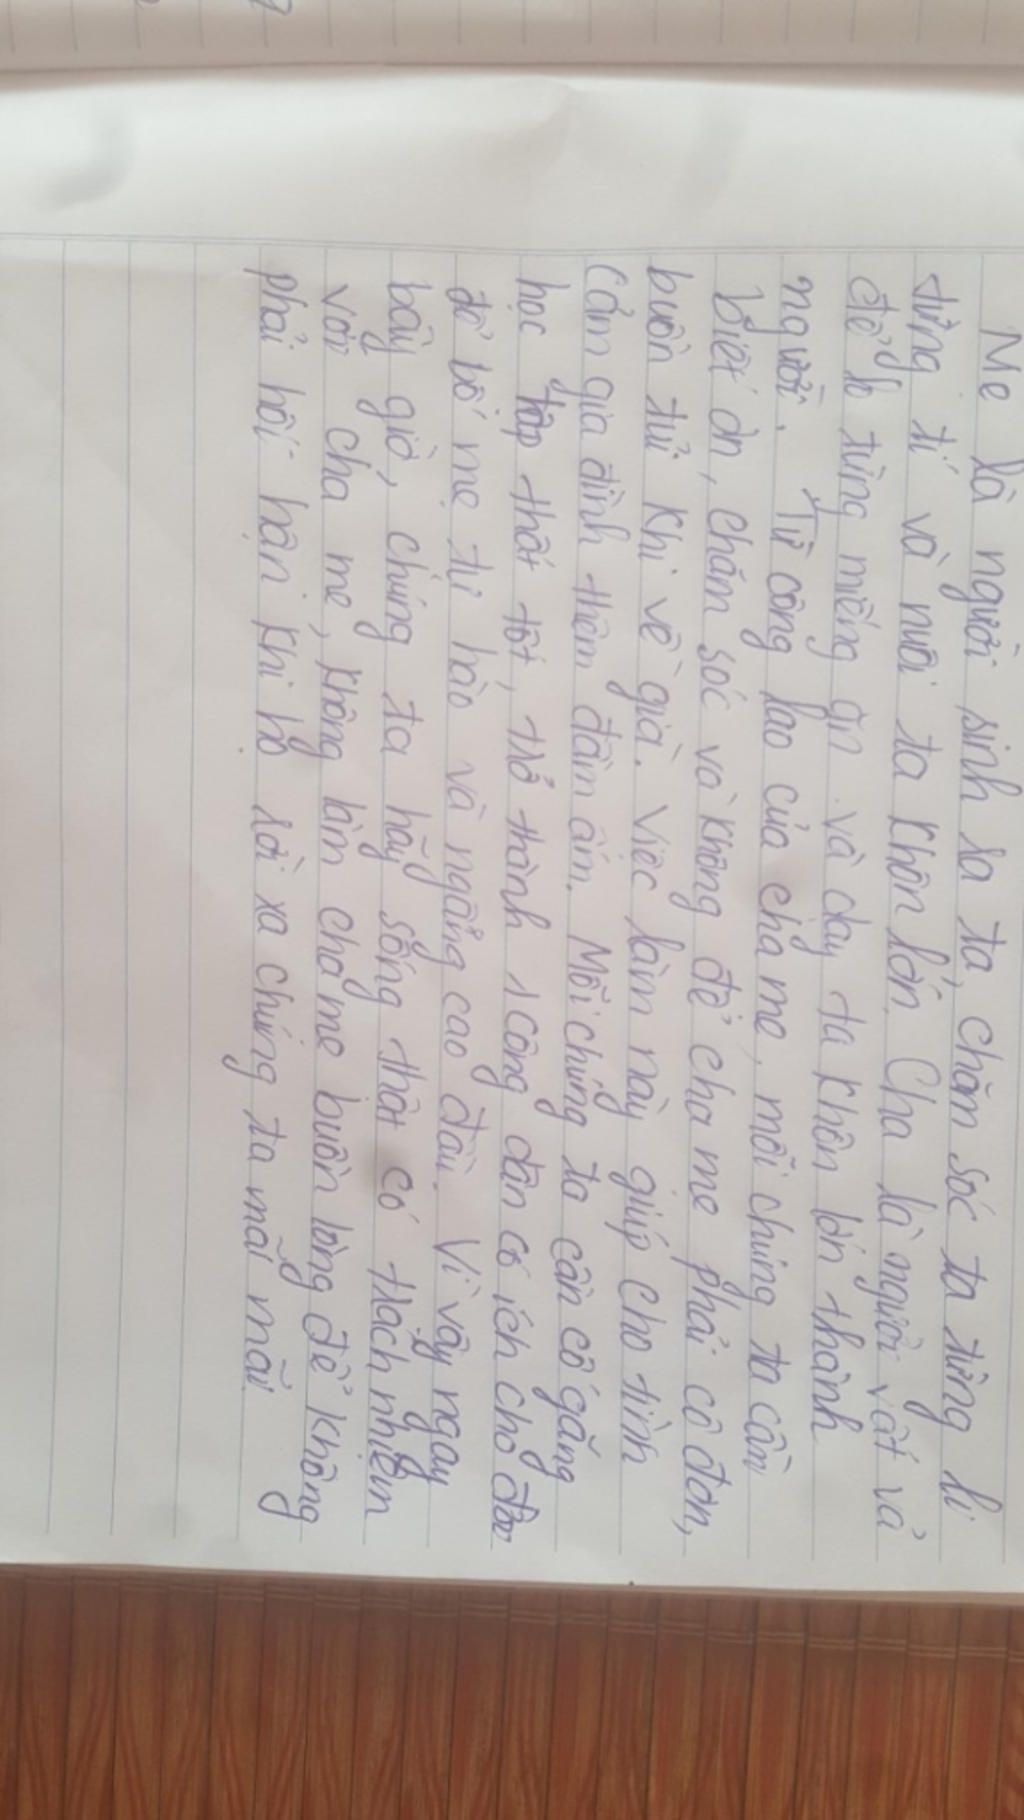 Mẹ là người sinh ra ta, chăm sóc ta từng li
từng tí và nuôi ta khôn lớn. Cha là người vất vả
để lo từng miếng ăn và dạy ta khôn lớn thành
người. Từ công lao của cha mẹ, mỗi chúng ta cần
biết ơn, chăm sóc và không để cha mẹ phải cô đơn,
buồn tủi khi về già. Việc làm này giúp cho tình
cảm gia đình thêm đầm ấm. Mỗi chúng ta cần cố gắng
học tập thật tốt, trở thành 1 công dân có ích cho đời
để bố mẹ tự hào và ngẩng cao đầu. Vì vậy ngay
bây giờ, chúng ta hãy sống thật có trách nhiệm
với cha mẹ, không làm cha mẹ buồn lòng để không
phải hối hận khi họ rời xa chúng ta mãi mãi.